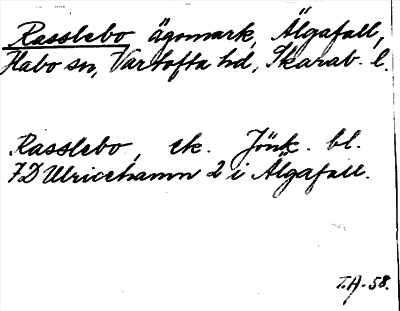 Rasslebo, ägomark, Älgafall,
Habo sn, Vartofta hd, Skarab. l.
Rasslebo, ek. Jönk. bl.
7D Ulricehamn 2 i Älgafall.
T.A. 58.